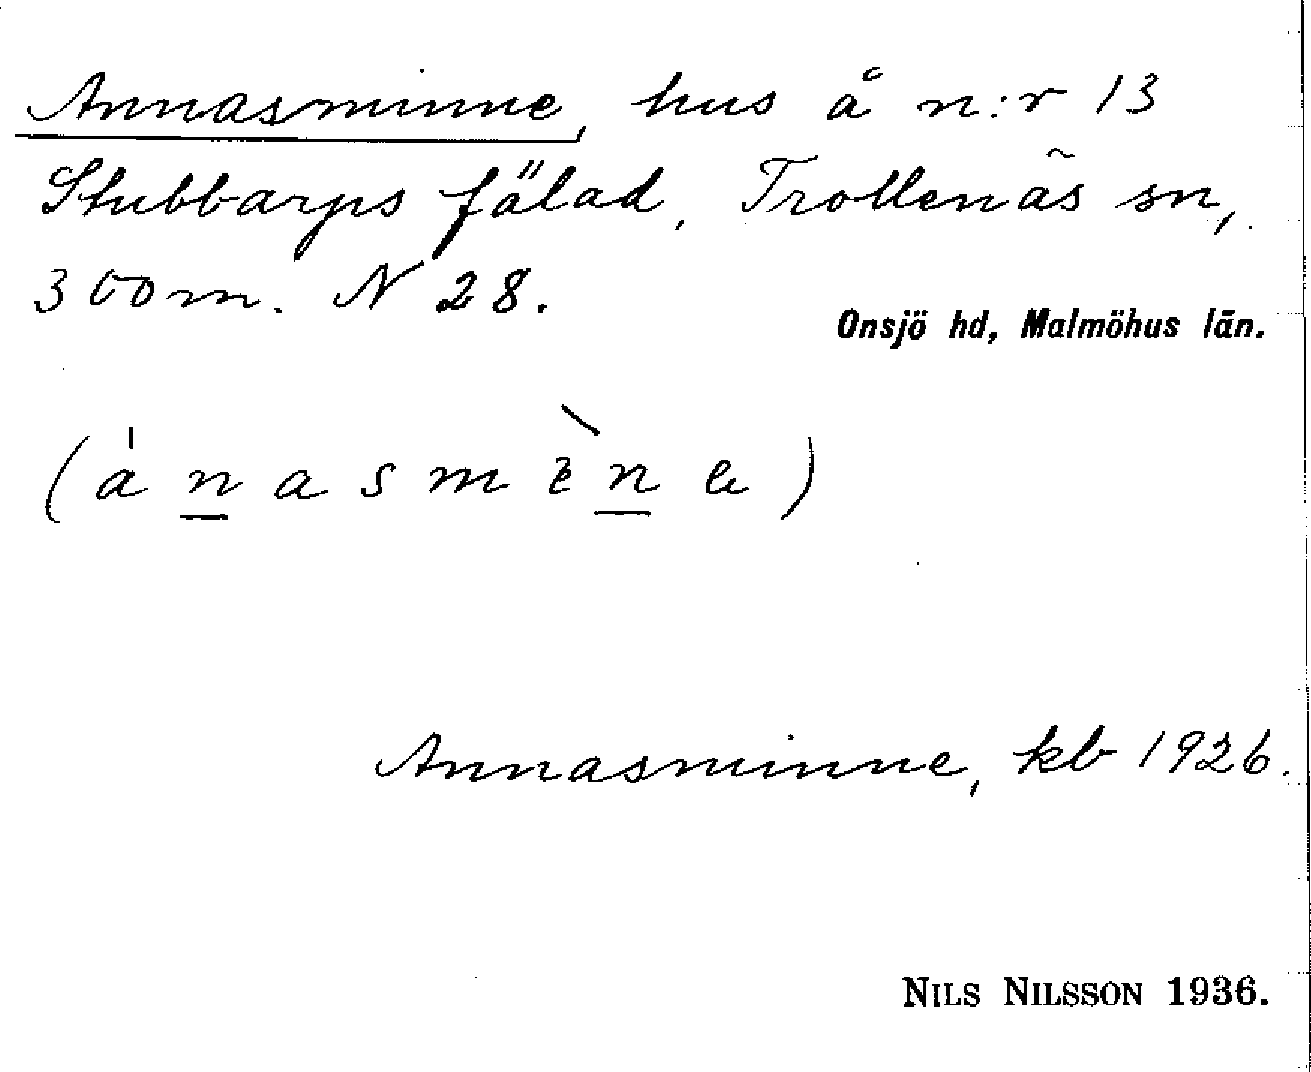 Annasminne, hus å n:r 13
Stubbarps fälad, Trollenäs sn,
300 m. N 28.
Onsjö hd, Malmöhus län.
(ánasmène)
Annasminne, kb 1926.
NILS NILSSON 1936.